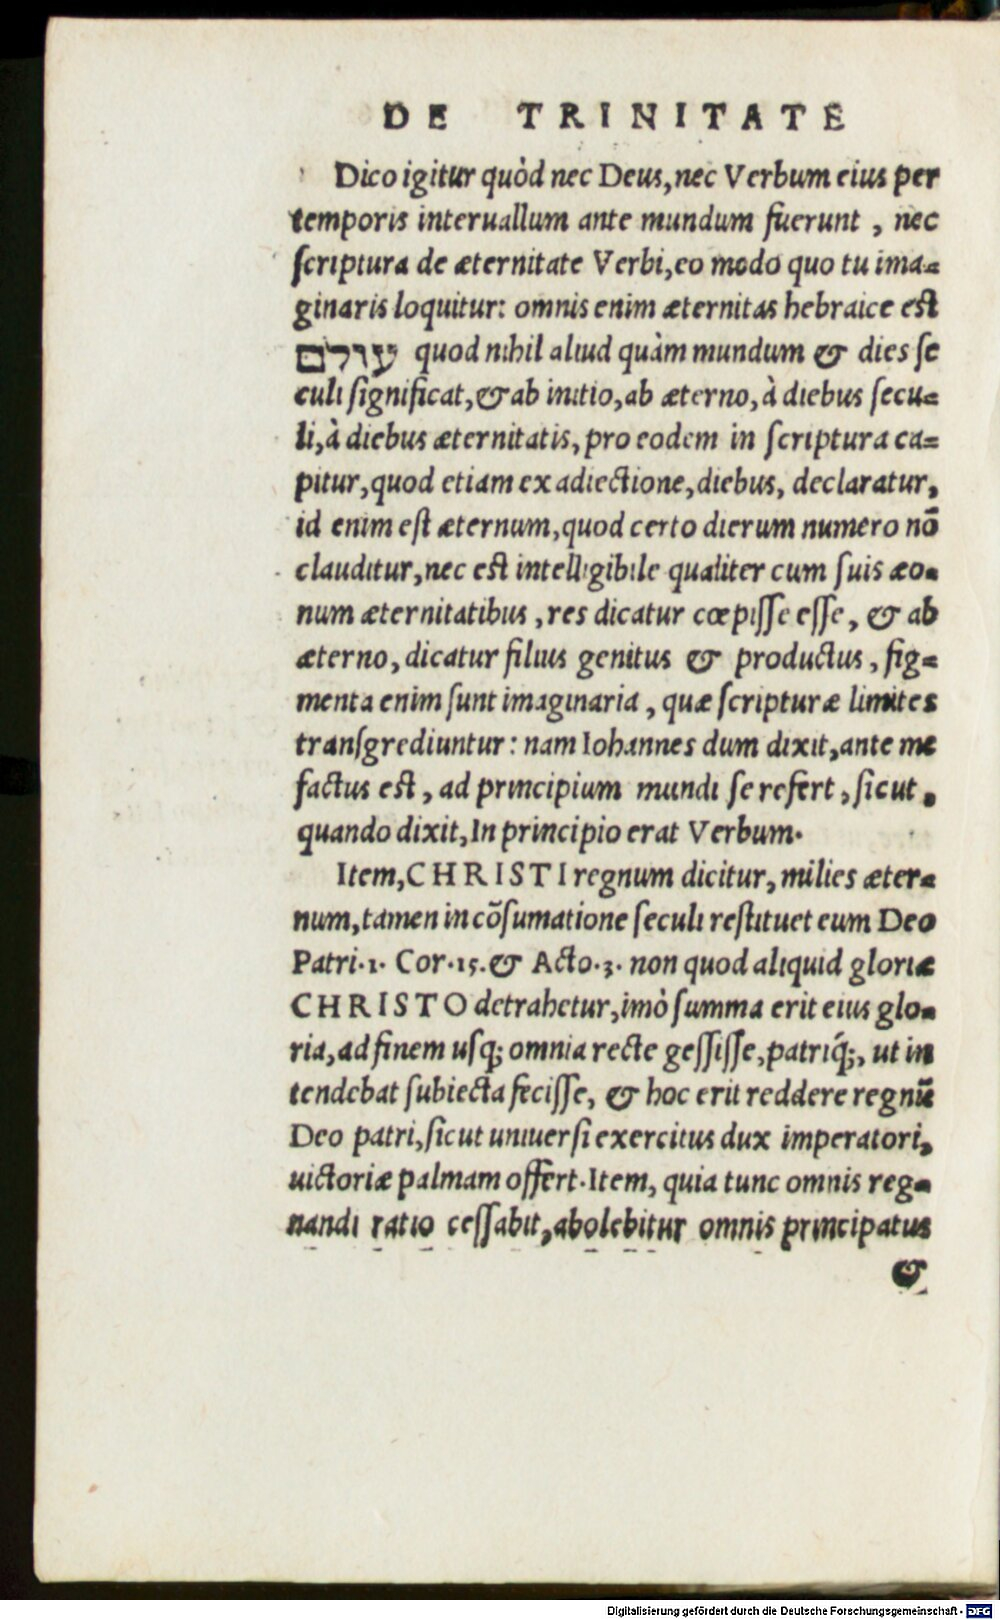 DE TRINITATE
Dico igitur quòd nec Deus, nec Verbum eius per
temporis interuallum ante mundum fuerunt, nec
scriptura de æternitate Verbi, eo modo quo tu ima-
ginaris loquitur: omnis enim æternitas hebraice est
עולם quod nihil aliud quàm mundum & dies se
culi significat, & ab initio, ab æterno, à diebus secu-
li, à diebus æternitatis, pro eodem in scriptura ca-
pitur, quod etiam ex adiectione, diebus, declaratur,
id enim est æternum, quod certo dierum numero nō
clauditur, nec est intelligibile qualiter cum suis æo-
num æternitatibus, res dicatur cœpisse esse, & ab
æterno, dicatur filius genitus & productus, fig-
menta enim sunt imaginaria, quæ scripturæ limites
transgrediuntur: nam Iohannes dum dixit, ante me
factus est, ad principium mundi se refert, sicut,
quando dixit, In principio erat Verbum.
Item, CHRISTI regnum dicitur, milies æter-
num, tamen in cōsumatione seculi restituet eum Deo
Patri. 1. Cor. 15. & Acto. 3. non quod aliquid gloriæ
CHRISTO detrahetur, imò summa erit eius glo-
ria, ad finem usq; omnia recte gessisse, patriq́;, ut in
tendebat subiecta fecisse, & hoc erit reddere regnū
Deo patri, sicut uniuersi exercitus dux imperatori,
uictoriæ palmam offert. Item, quia tunc omnis reg-
nandi ratio cessabit, abolebitur omnis principatus
&
Digitalisierung gefördert durch die Deutsche Forschungsgemeinschaft - DFG